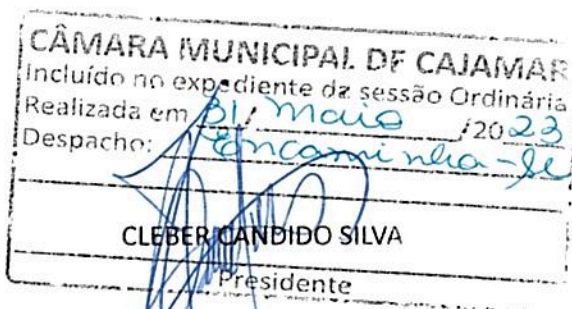 CÂMARA MUNICIPAL DE CAJAMAR
Incluído no expediente da sessão Ordinária
Realizada em 31/ maio /2023
Despacho: Encaminha-se
CLEBER CANDIDO SILVA
Presidente